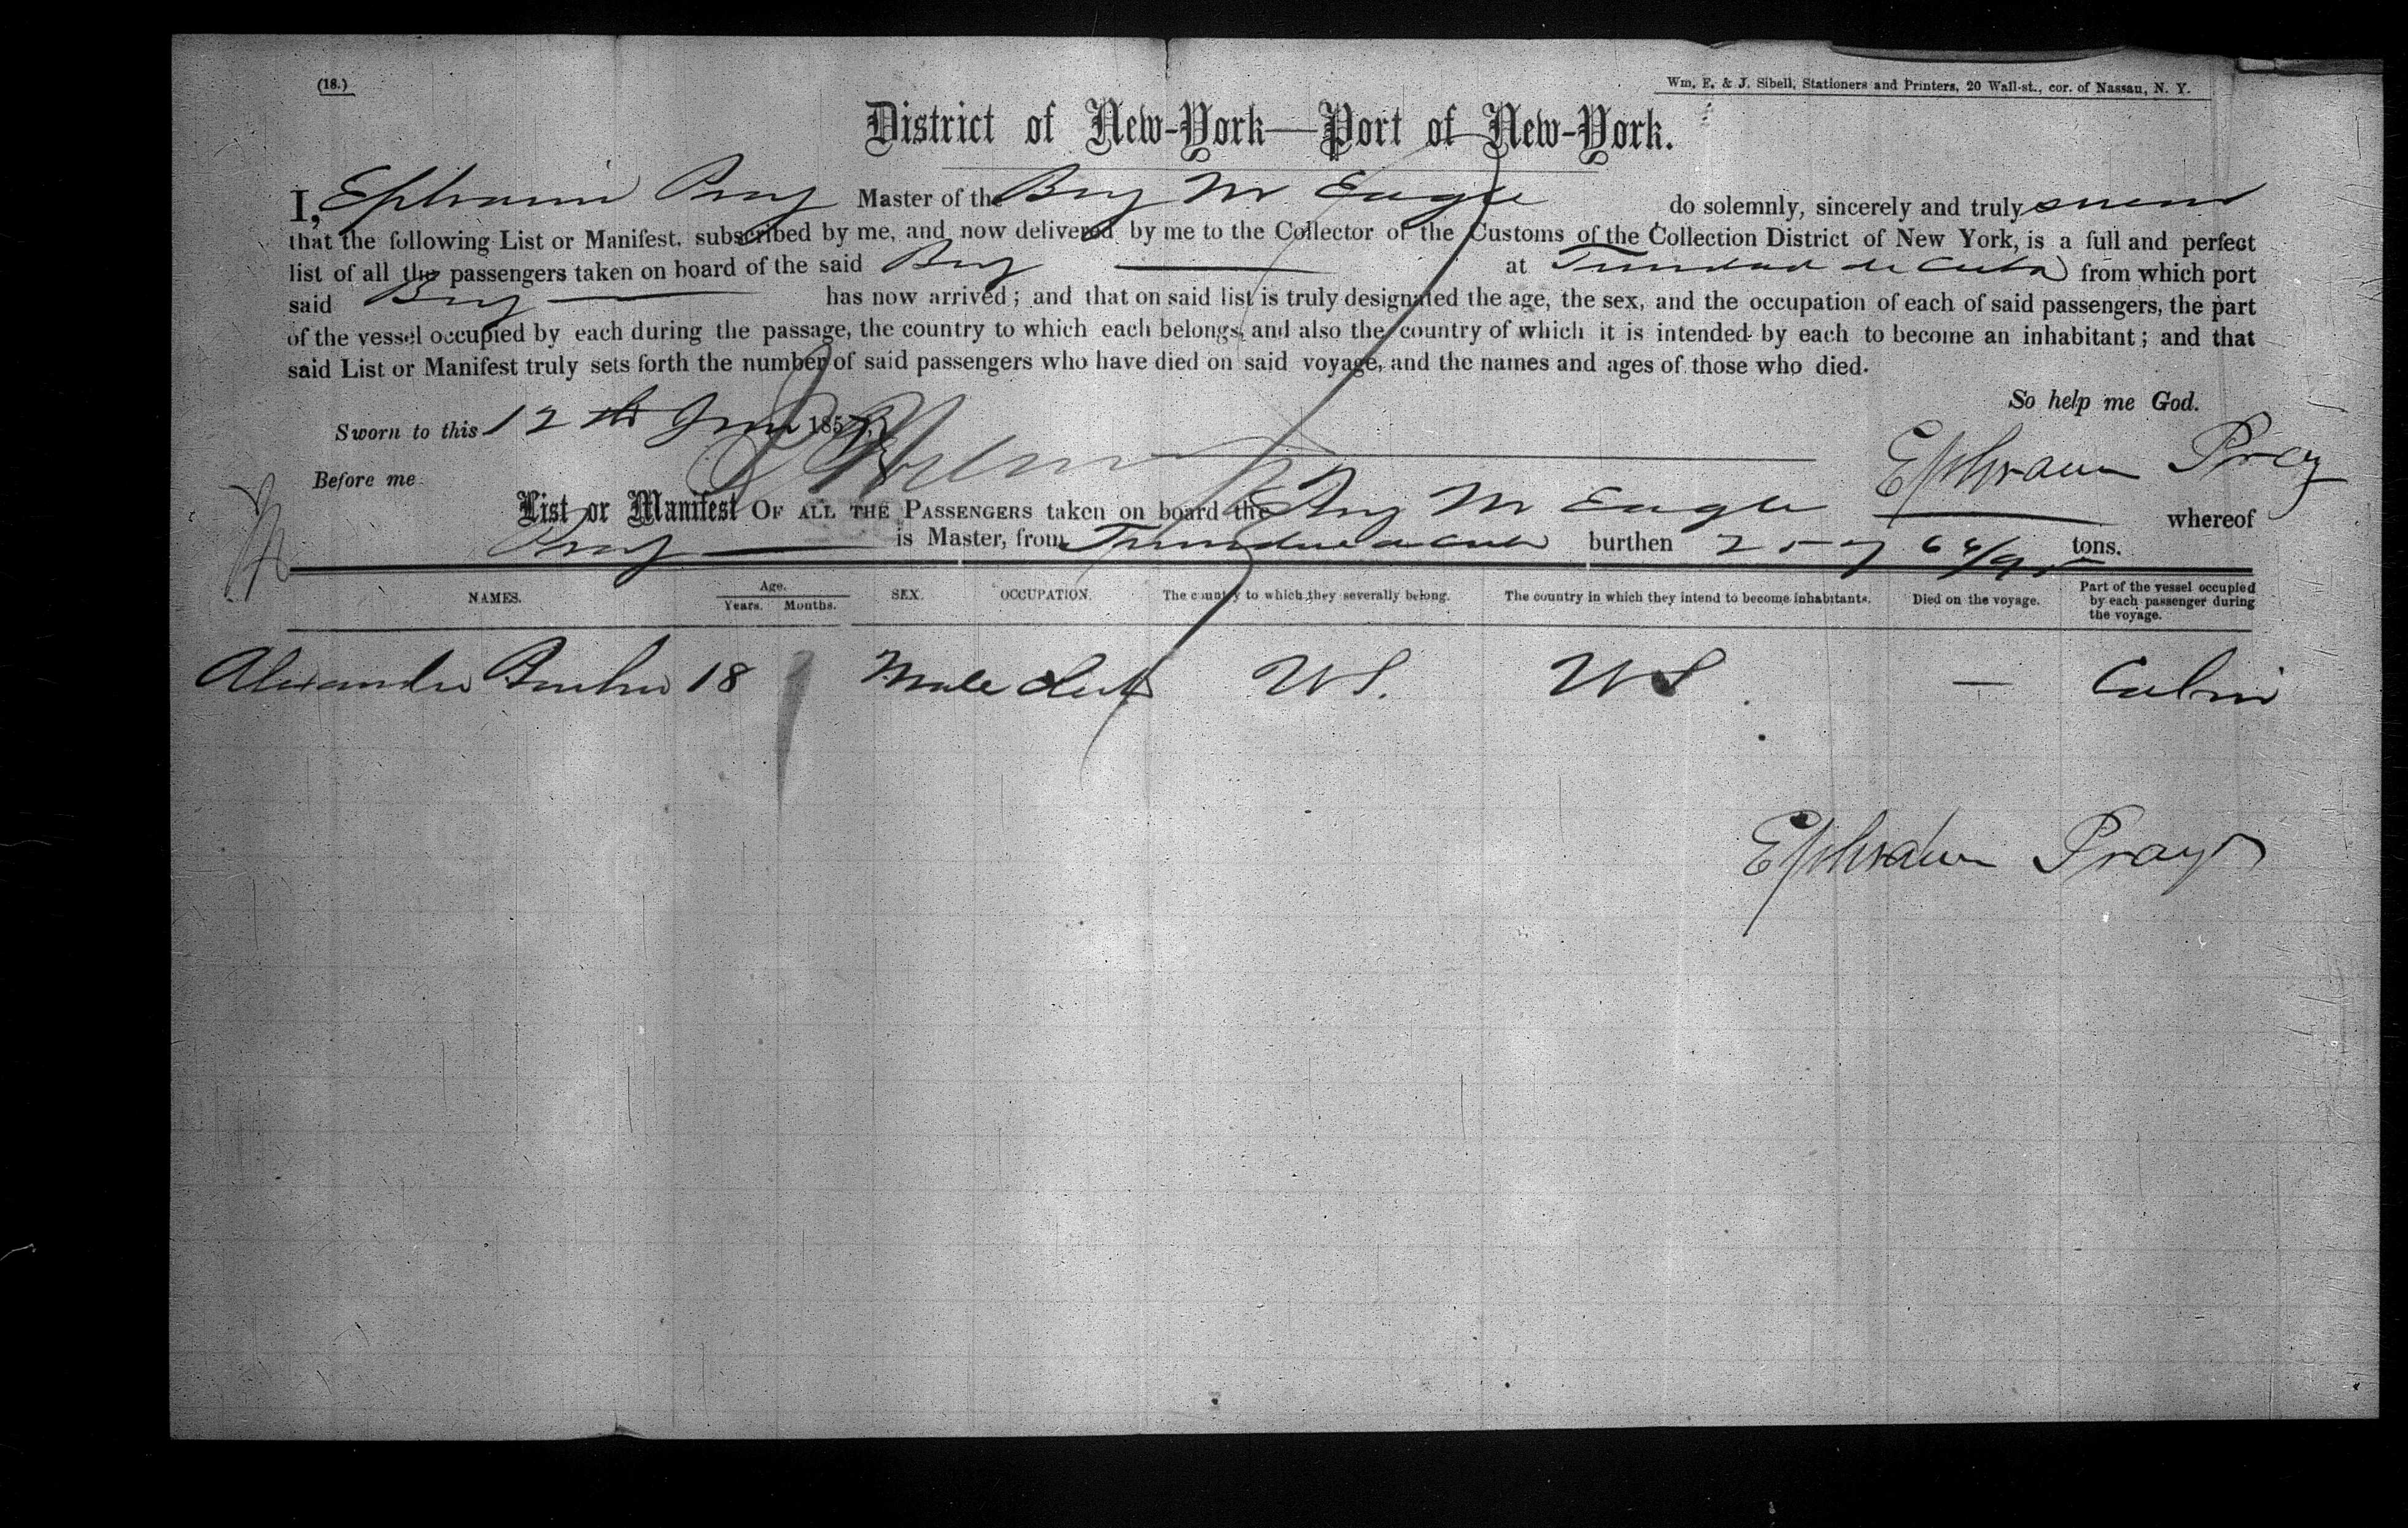 (18.)
Wm. E. & J. Sibell, Stationers and Printers, 20 Wall-st., cor. of Nassau, N. Y.
District of New-York—Port of New-York.
I, Ephraim Pray Master of the Brig M Eagle do solemnly, sincerely and truly swear
that the following List or Manifest, subscribed by me, and now delivered by me to the Collector of the Customs of the Collection District of New York, is a full and perfect
list of all the passengers taken on board of the said Brig at Trinidad de Cuba from which port
said Brig has now arrived; and that on said list is truly designated the age, the sex, and the occupation of each of said passengers, the part
of the vessel occupied by each during the passage, the country to which each belongs, and also the country of which it is intended by each to become an inhabitant; and that
said List or Manifest truly sets forth the number of said passengers who have died on said voyage, and the names and ages of those who died.
So help me God.
Sworn to this 12th June 1857
Ephraim Pray
Before me
List or Manifest OF ALL THE PASSENGERS taken on board the Brig M Eagle whereof
Pray is Master, from Trinidad de Cuba burthen 257 tons.
NAMES. Age. Years. Months. SEX. OCCUPATION. The country to which they severally belong. The country in which they intend to become inhabitants. Died on the voyage. Part of the vessel occupied by each passenger during the voyage.
Alexander 18 Male US. US — Cabin
Ephraim Pray